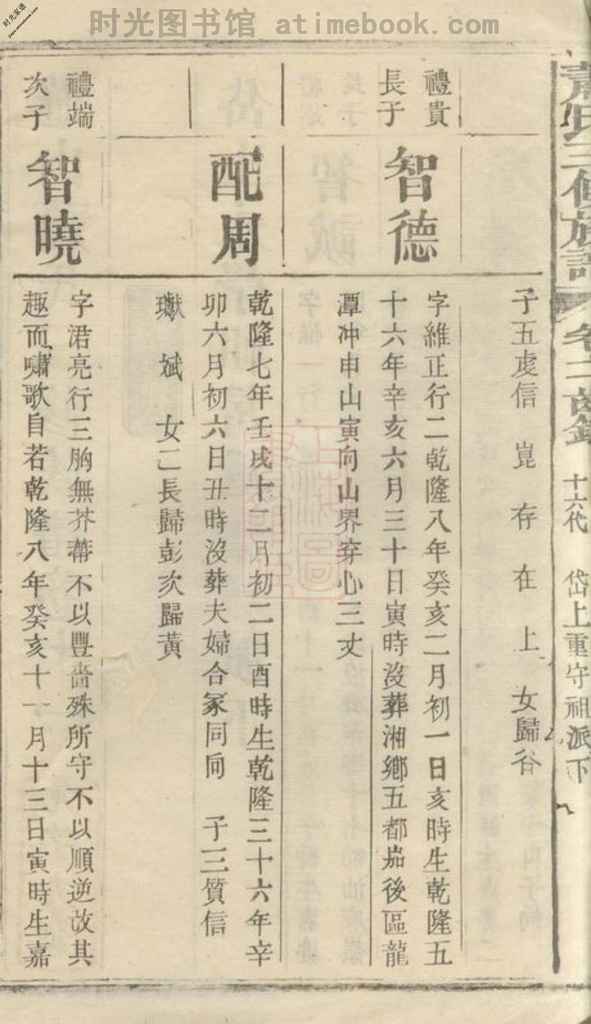 时光图书馆 atimebook.com
时光家谱
蕭氏三修族譜 卷二齒錄 十六代 岱上重守祖派下
子五虔信 崑 存 在 上 女歸谷
禮貴
長子
智德
字維正行二乾隆八年癸亥二月初一日亥時生乾隆五
十六年辛亥六月三十日寅時沒葬湘鄉五都嘉後區龍
潭冲申山寅向山界穿心三丈
配周
乾隆七年壬戌十二月初二日酉時生乾隆三十六年辛
卯六月初六日丑時沒葬夫婦合冢同向 子三質信
斌 女二長歸彭次歸黃
禮端
次子
智曉
字涒亮行三胸無芥蔕不以豐嗇殊所守不以順逆改其
趣而嘯歌自若乾隆八年癸亥十一月十三日寅時生嘉